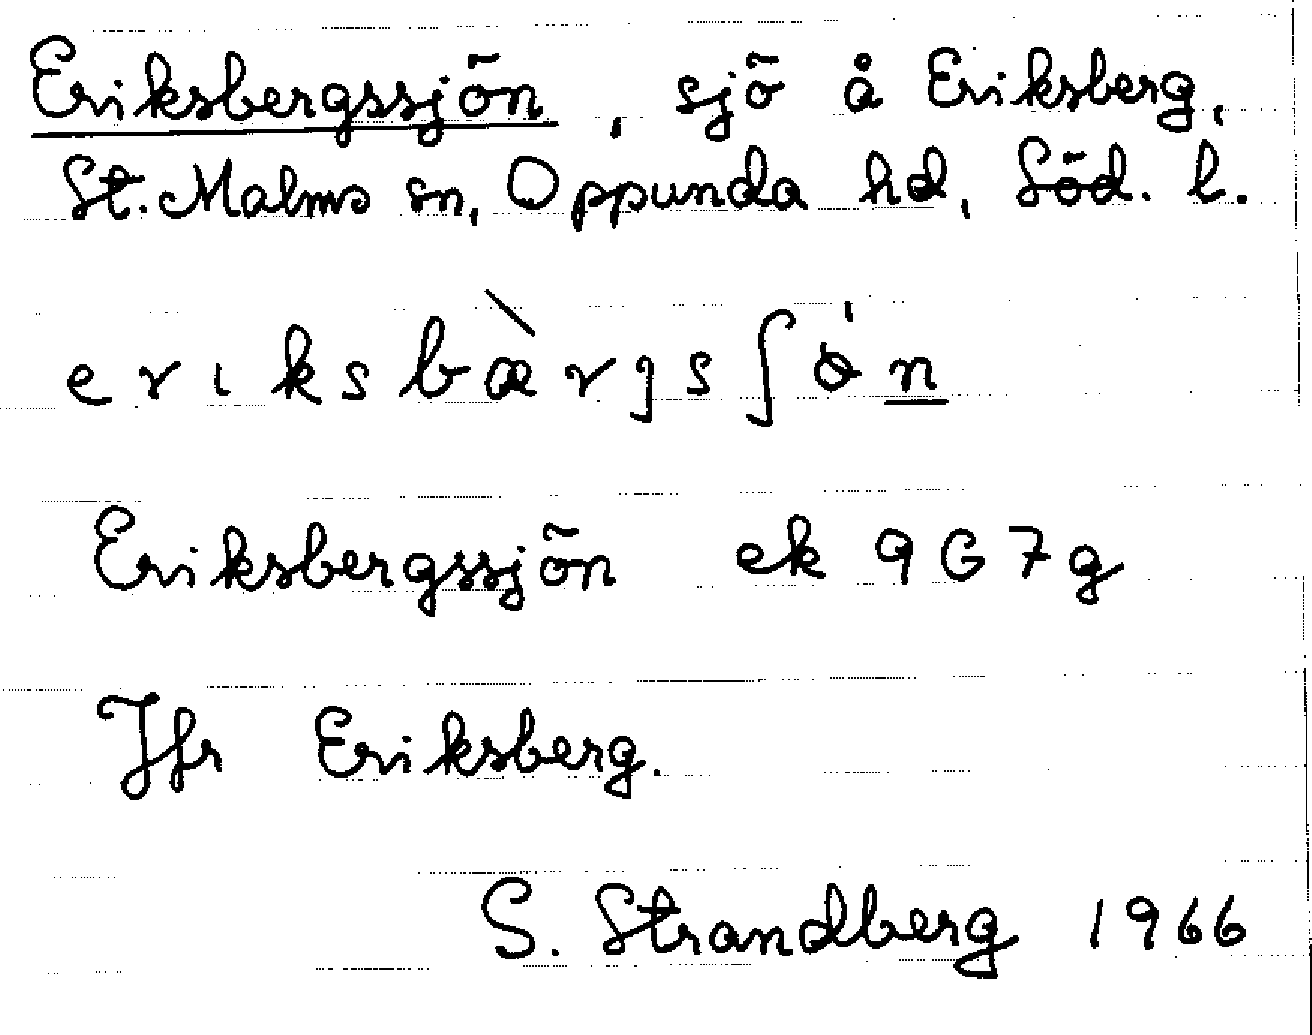 Eriksbergssjön, sjö å Eriksberg,
St. Malms sn, Oppunda hd, Söd. l.
erıksbæ̀rgsʃɵ́n
Eriksbergssjön ek 9G7g
Jfr Eriksberg.
S. Strandberg 1966